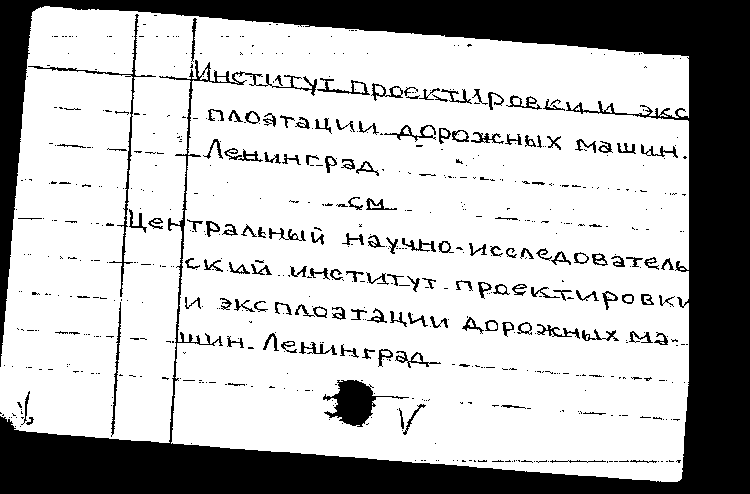 Институт проектировки и экс
плоатации дорожных машин.
Ленинград
см
Центральный научно-исследователь
ский институт проектировки
и эксплоатации дорожных ма-
шин. Ленинград
V